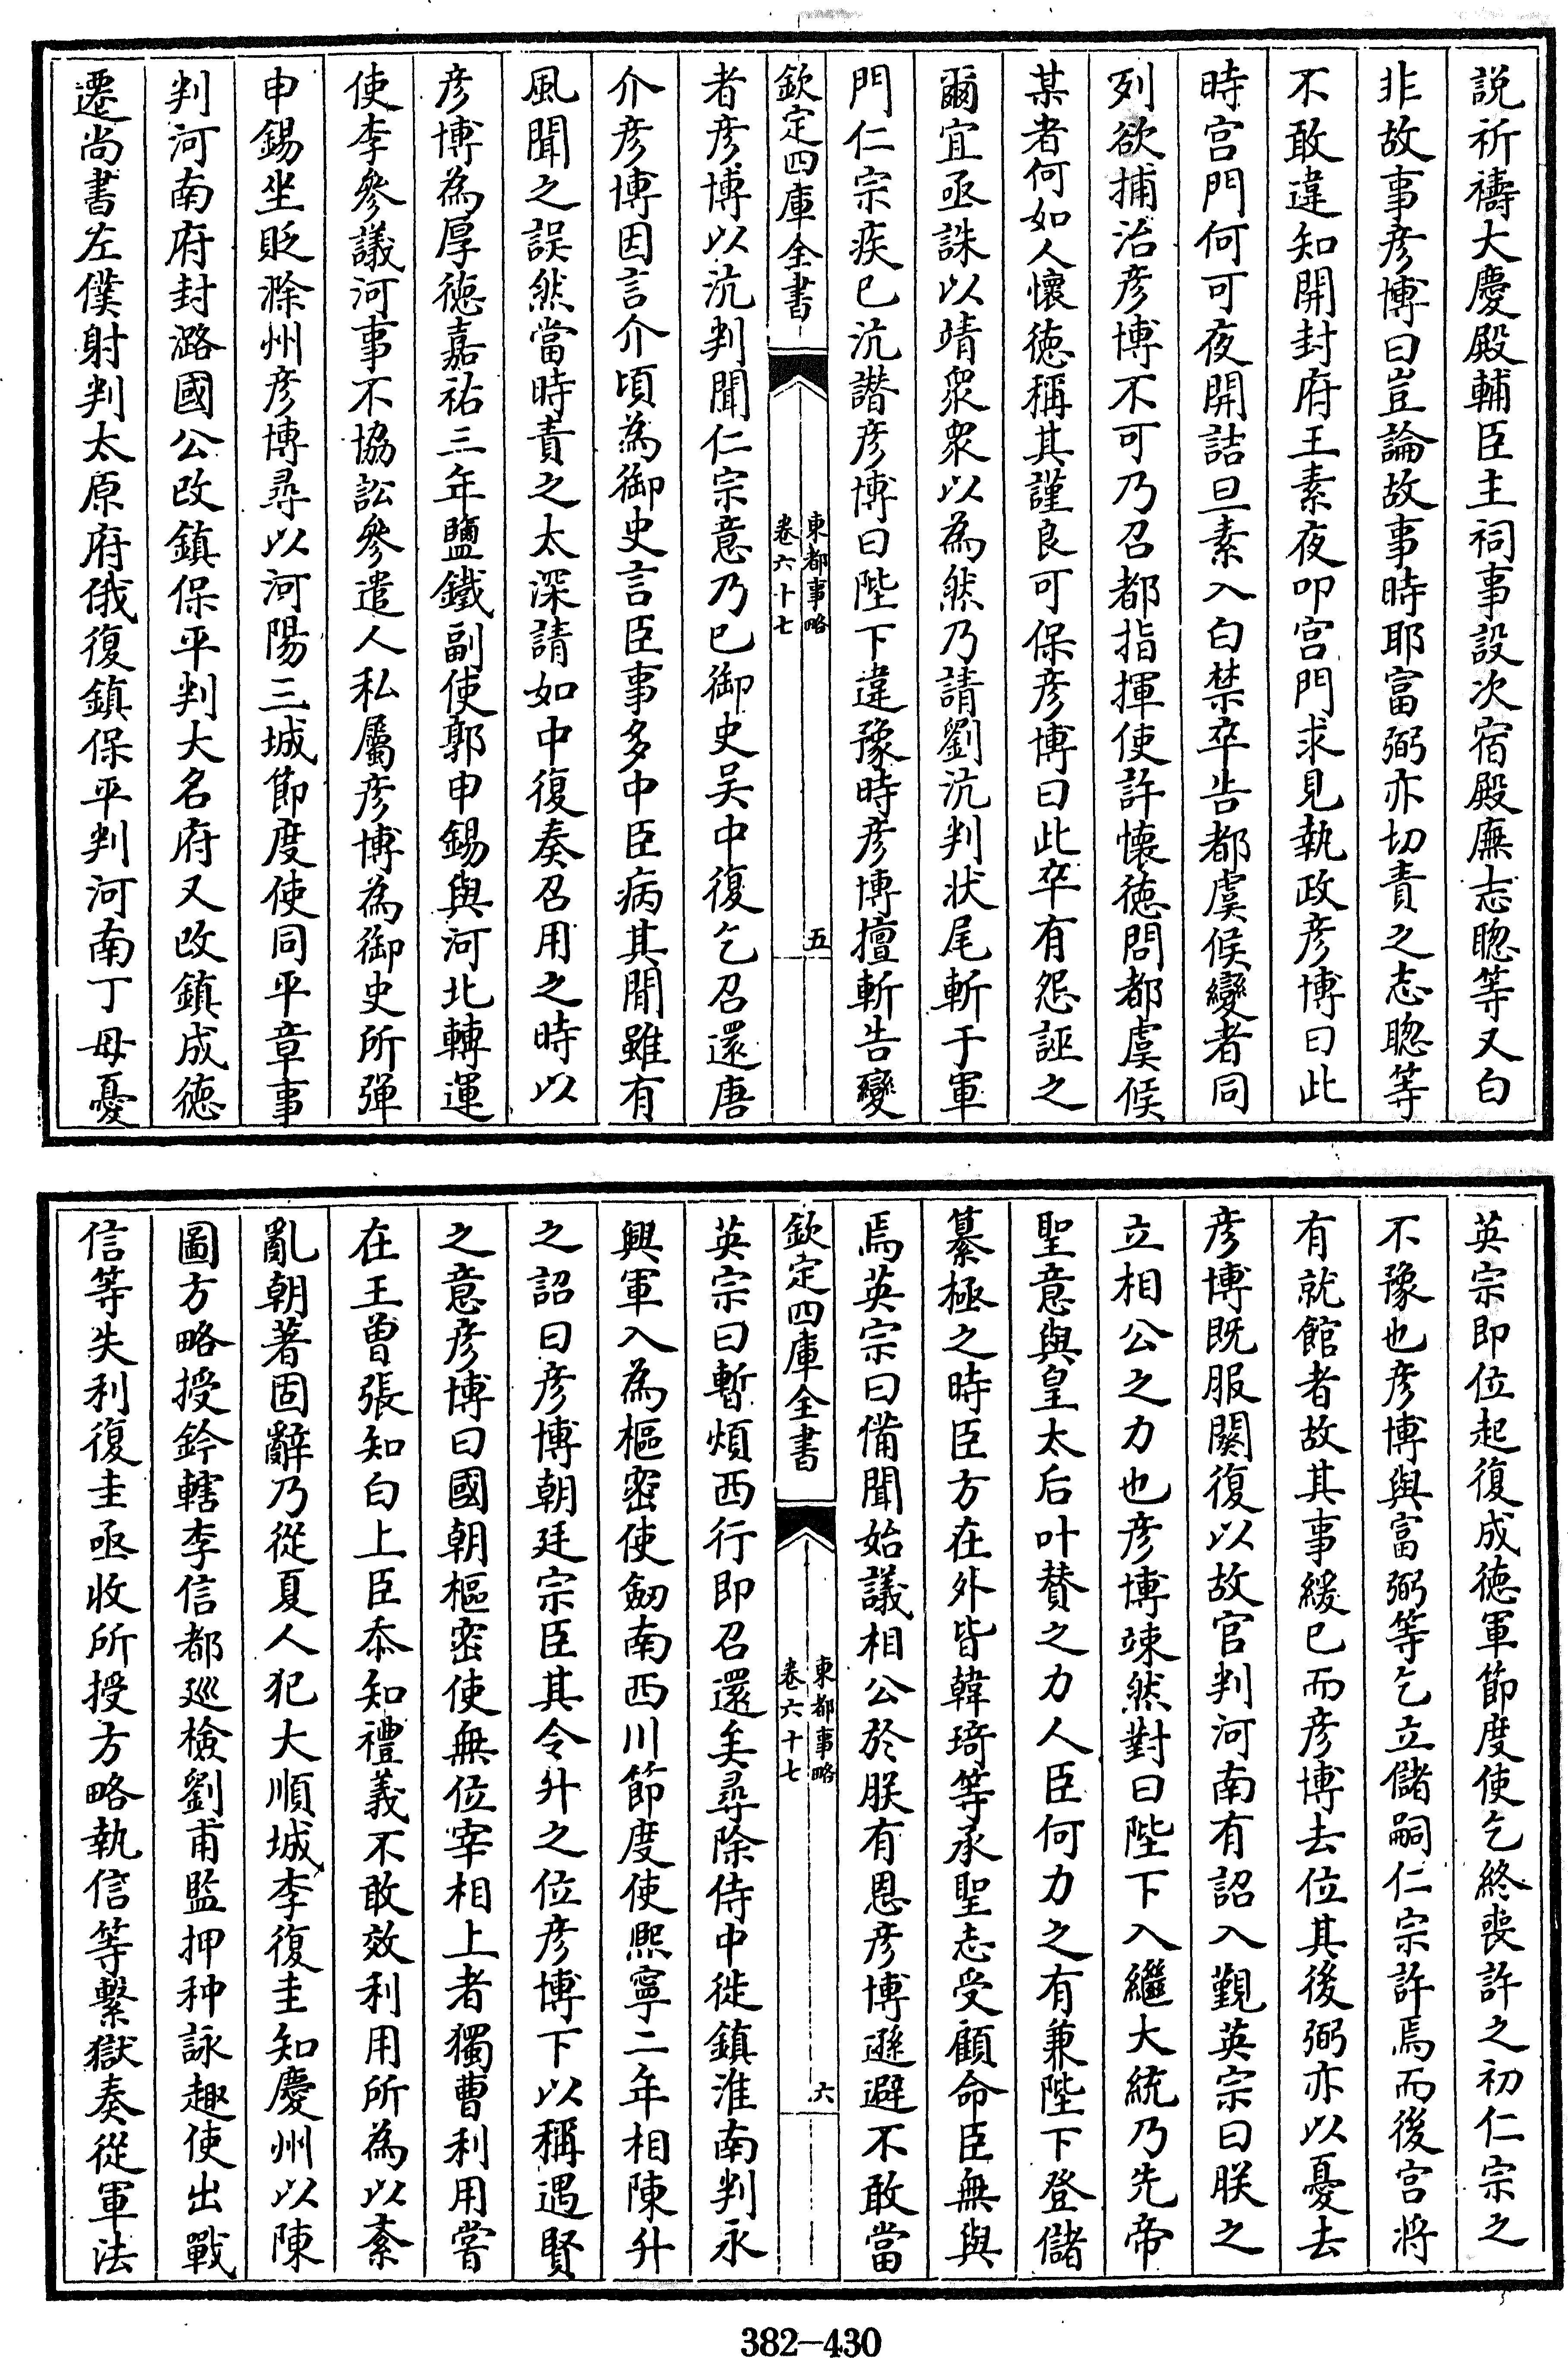 說祈禱大慶殿輔臣主祠事設次宿殿廡志聰等又白
非故事彦博曰豈論故事時耶富弼亦切責之志聰等
不敢違知開封府王素夜叩宫門求見執政彦博曰此
時宫門何可夜開詰旦素入白禁卒告都虞候變者同
列欲捕治彦博不可乃召都指揮使許懐徳問都虞候
某者何如人懐徳稱其謹良可保彦博曰此卒有怨誣之
爾宜亟誅以靖衆衆以為然乃請劉沆判状尾斬于軍
門仁宗疾已沆譖彦博曰陛下違豫時彦博擅斬告變
欽定四庫全書
東都事略
卷六十七
五
者彦博以沆判聞仁宗意乃已御史吴中復乞召還唐
介彦博因言介頃為御史言臣事多中臣病其間雖有
風聞之誤然當時責之太深請如中復奏召用之時以
彦博為厚徳嘉祐三年鹽鐵副使郭申錫與河北轉運
使李參議河事不協訟參遣人私屬彦博為御史所弹
申錫坐貶滁州彦博尋以河陽三城節度使同平章事
判河南府封潞國公改鎮保平判大名府又改鎮成徳
遷尚書左僕射判太原府俄復鎮保平判河南丁母憂
英宗即位起復成徳軍節度使乞終喪許之初仁宗之
不豫也彦博與富弼等乞立儲嗣仁宗許焉而後宫将
有就館者故其事緩已而彦博去位其後弼亦以憂去
彦博既服闋復以故官判河南有詔入覲英宗曰朕之
立相公之力也彦博竦然對曰陛下入繼大統乃先帝
聖意與皇太后叶賛之力人臣何力之有兼陛下登儲
纂極之時臣方在外皆韓琦等承聖志受顧命臣無與
焉英宗曰備聞始議相公於朕有恩彦博遜避不敢當
欽定四庫全書
東都事略
卷六十七
六
英宗曰暫煩西行即召還矣尋除侍中徙鎮淮南判永
興軍入為樞密使劒南西川節度使熙寧二年相陳升
之詔曰彦博朝廷宗臣其令升之位彦博下以稱遇賢
之意彦博曰國朝樞密使無位宰相上者獨曹利用嘗
在王曽張知白上臣忝知禮義不敢效利用所為以紊
亂朝著固辭乃從夏人犯大順城李復圭知慶州以陳
圖方略授鈐轄李信都巡檢劉甫監押种詠趣使出戰
信等失利復圭亟收所授方略執信等繫獄奏從軍法
382-430